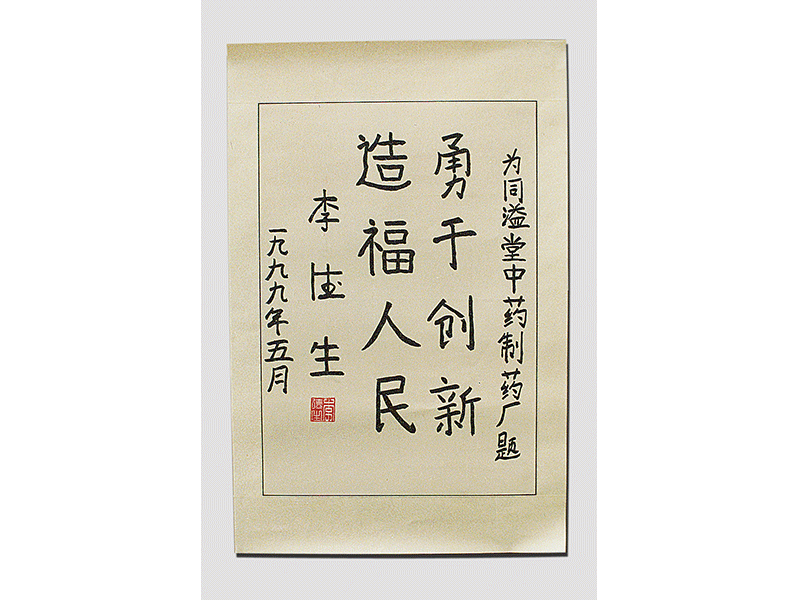 为同溢堂中药制药厂题
勇于创新
造福人民
李德生
一九九九年五月